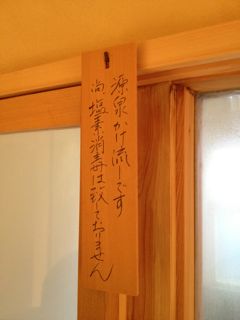 源泉かけ流しです
尚、塩素消毒は致しておりません